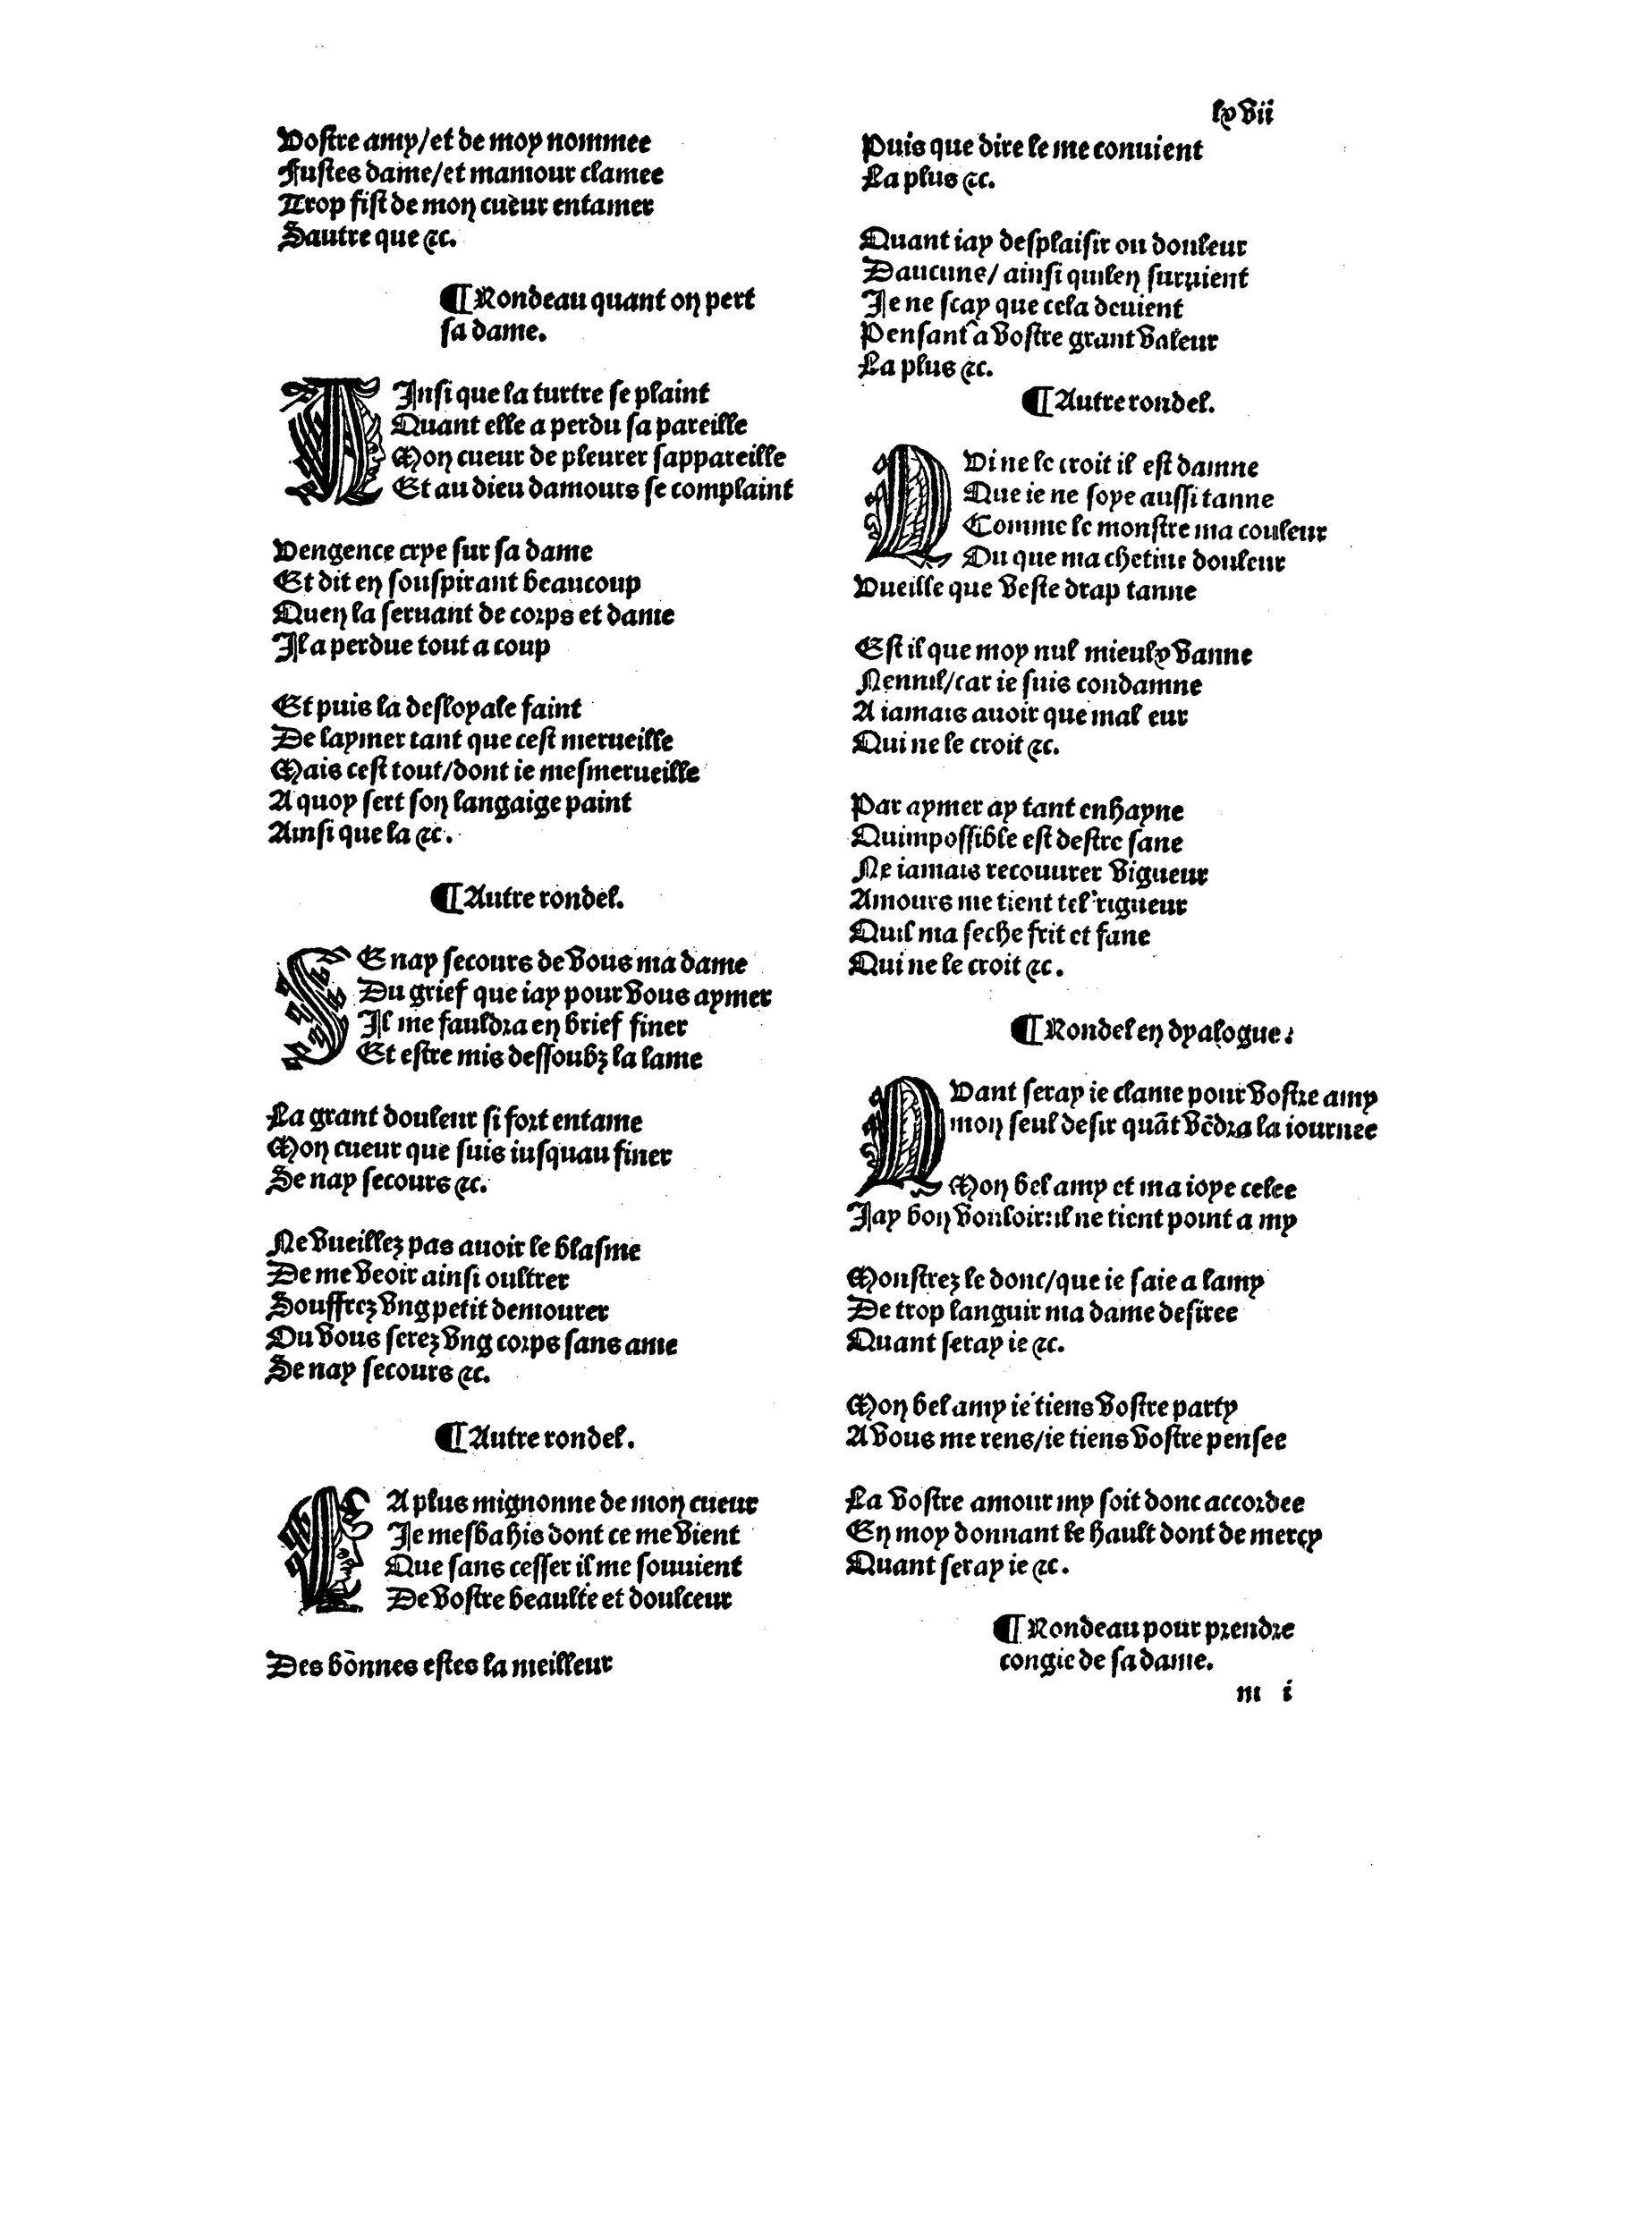 lxvii
Vostre amy/et de moy nommee
Fustes dame/et mamour clamee
Trop fist de mon cueur entamer
Sautre que &c.
¶ Rondeau quant on pert
sa dame.
AInsi que la turtre se plaint
Quant elle a perdu sa pareille
Mon cueur de pleurer sappareille
Et au dieu damours se complaint
Vengence crye sur sa dame
Et dit en souspirant beaucoup
Quen la seruant de corps et dame
Il a perdue tout a coup
Et puis la desloyale faint
De laymer tant que cest merueille
Mais cest tout/dont ie mesmerueille
A quoy sert son langaige paint
Ainsi que la &c.
¶ Autre rondel.
SE nay secours de vous ma dame
Du grief que iay pour vous aymer
Il me fauldra en brief finer
Et estre mis dessoubz la lame
La grant douleur si fort entame
Mon cueur que suis iusquau finer
Se nay secours &c.
Ne vueillez pas auoir le blasme
De me veoir ainsi oultrer
Souffrez vng petit demourer
Ou vous serez vng corps sans ame
Se nay secours &c.
¶ Autre rondel.
LA plus mignonne de mon cueur
Je mesbahis dont ce me vient
Que sans cesser il me souuient
De vostre beaulte et doulceur
Des bonnes estes la meilleur
Puis que dire le me conuient
La plus &c.
Quant iay desplaisir ou douleur
Daucune/ ainsi quilen suruient
Je ne scay que cela deuient
Pensant a vostre grant valeur
La plus &c.
¶ Autre rondel.
QVi ne le croit il est damne
Que ie ne soye aussi tanne
Comme le monstre ma couleur
Ou que ma chetiue douleur
Vueille que veste drap tanne
Est il que moy nul mieulx vanne
Nennil/car ie suis condamne
A iamais auoir que mal eur
Qui ne le croit &c.
Par aymer ay tant enhayne
Quimpossible est destre sane
Ne iamais recouurer vigueur
Amours me tient tel rigueur
Quil ma seche frit et fane
Qui ne le croit &c.
¶ Rondel en dyalogue.
QVant seray ie clame pour vostre amy
mon seul desir quãt vẽdra la iournee
Mon bel amy et ma ioye celee
Jay bon vouloir:il ne tient point a my
Monstrez le donc/que ie saie a lamy
De trop languir ma dame desiree
Quant seray ie &c.
Mon bel amy ie tiens vostre party
A vous me rens/ie tiens vostre pensee
La vostre amour my soit donc accordee
En moy donnant le hault dont de mercy
Quant seray ie &c.
¶ Rondeau pour prendre
congie de sa dame.
m i